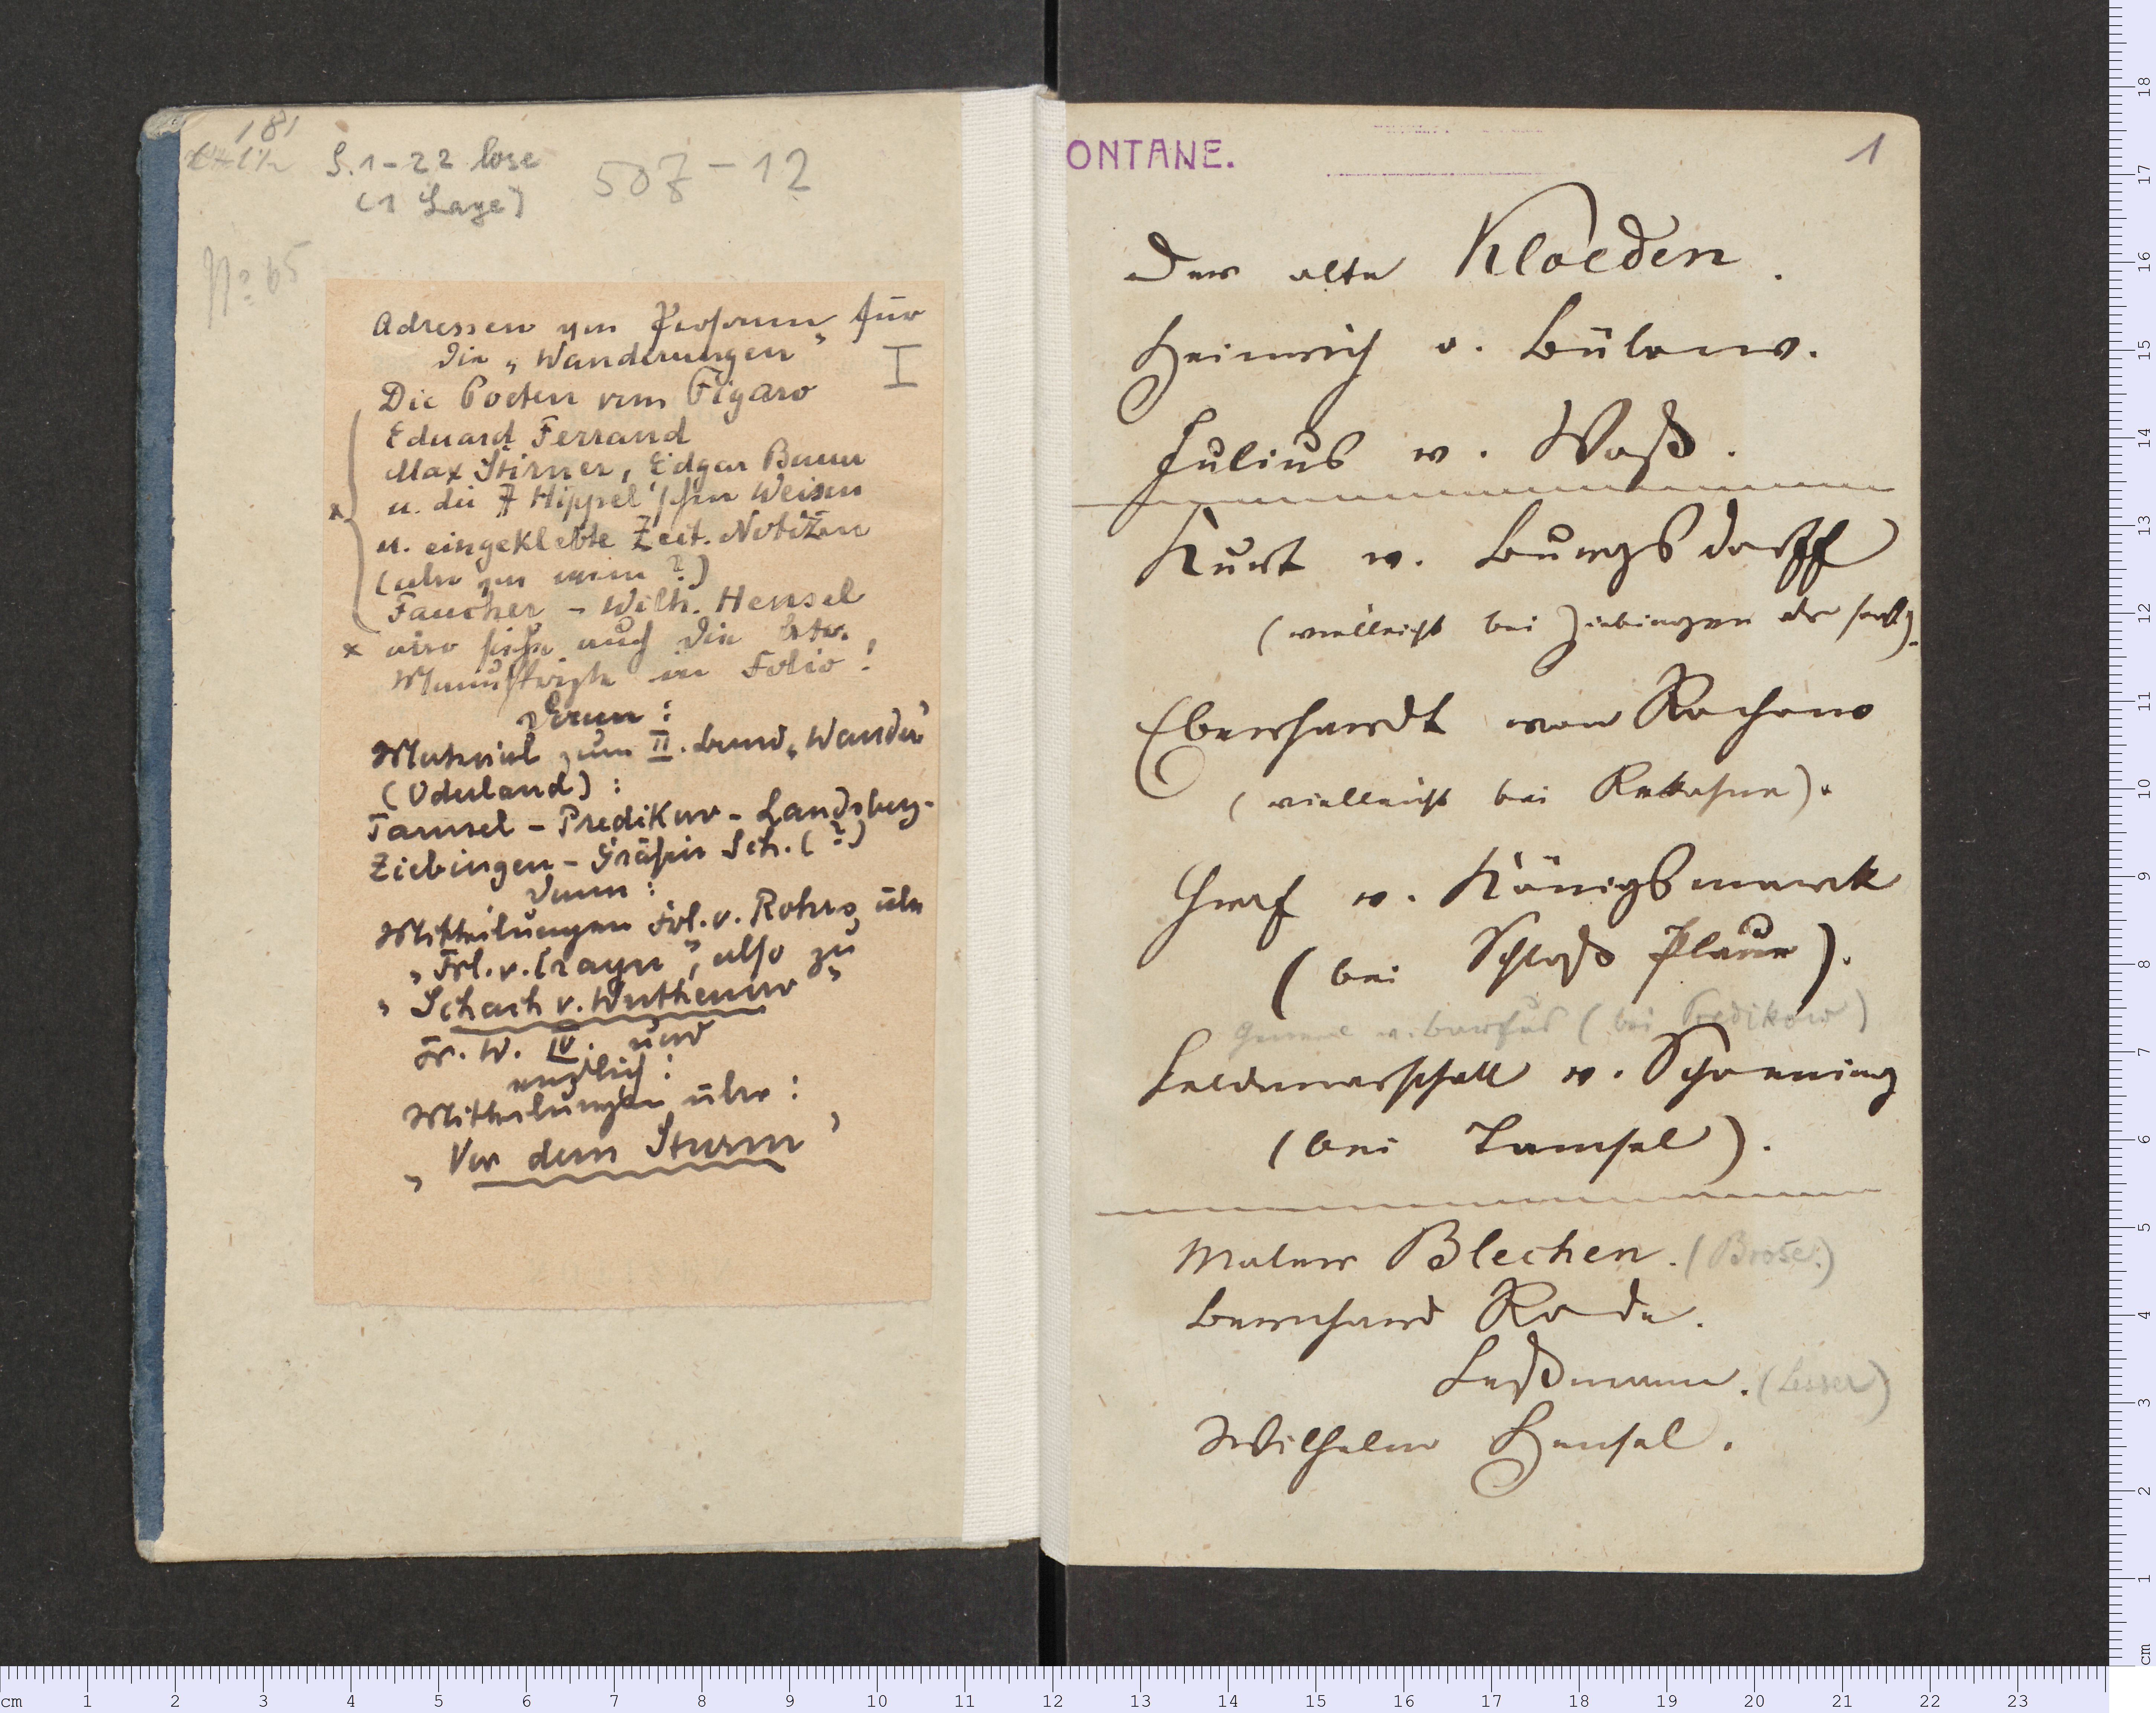 181
S. 1-22 lose
(1 Lage)
507-12
No 65
Adressen von Personen für
die „Wanderungen“
I
Die Poeten vom Figaro
Eduard Ferrand
Max Stirner, Edgar Bauer
u. die 7 Hippel'schen Weisen
u. eingeklebte Zeit. Notizen
(aber von wem?)
Faucher – Wilh. Hensel
x also siehe auch die betr.
Manuskripte in Folio!
Dann:
Material zum II. Band „Wander“
(Oderland):
Tamsel – Predikow – Landsberg-
Ziebingen – Gräfin Sch. (?)
dann:
Mittheilungen Frl. v. Rohrs über
„Frl. v. Crayn“, also zu
„Schach v. Wuthenow“
Fr. W. IV. und
endlich:
Mittheilungen über:
„Vor dem Sturm“
ONTANE.
1
Der alte Kloeden.
Heinrich v. Bülow.
Julius v. Voß.
Kurt v. Burgsdorff
(vielleicht bei Ziebingen oder sonst).
Eberhardt von Rochow
(vielleicht bei Rekahne).
Graf v. Königsmarck
(bei Schloß Plaue).
General v. Barfus (bei Predikow)
Feldmarschall v. Schoening
(bei Tamsel).
Maler Blechen. (Brose.)
Bernhard Rode.
Leßmann. (Lesser)
Wilhelm Hensel.